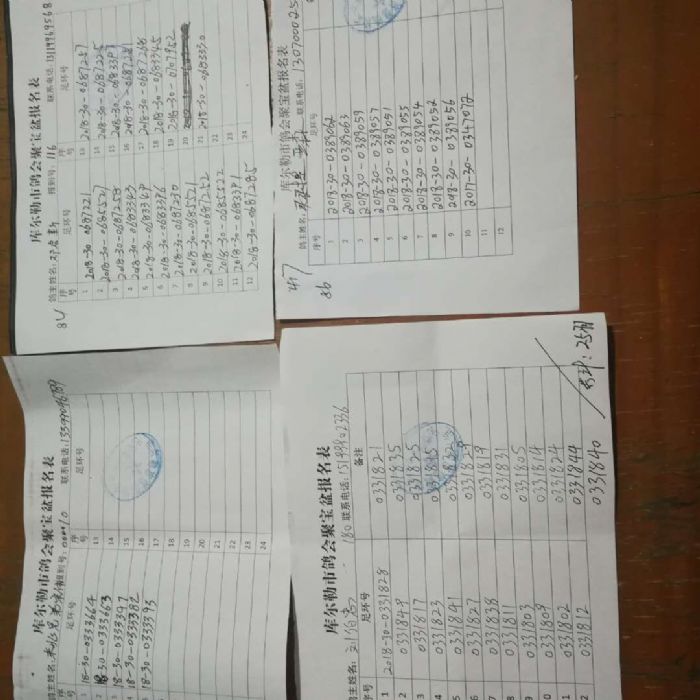 库尔勒市鸽会聚宝盆报名表
鸽主姓名: 报到号: 116 联系电话: 15119969568
序号 足环号 序号 足环号
1 2018-30-0687221
2 2018-30-0685527
3 2018-30-0687258
4 2018-30-0683343
5 2018-30-0683349
6 2018-30-0683376
7 2018-30-0687230
8 2018-30-0685521
9 2018-30-0687252
10 2018-30-0685522
11 2018-30-0683371
12 2018-30-0687285
13 2018-30-0687257
14 2018-30-0687225
15
16
17 2018-30-0687268
18 2018-30-0683345
19 2018-30-0707952
20
21 2018-30-0683350
22
23
24
84
库尔勒市鸽会聚宝盆报名表
鸽主姓名: 联系电话: 1307000025
序号 足环号
1 2018-30-0389062
2 2018-30-0389063
3 2018-30-0389059
4 2018-30-0389057
5 2018-30-0389051
6 2018-30-0389055
7 2018-30-0389054
8 2018-30-0389052
9 2018-30-0389056
10 2017-30-0347072
11
12
86
库尔勒市鸽会聚宝盆报名表
鸽主姓名: 报到号: 联系电话: 13399096789
序号 足环号 序号 足环号
1 18-30-0333664
2 18-30-0333663
18-30-0333397
18-30-0333382
18-30-0333393
13
14
15
16
17
18
19
20
21
22
23
24
库尔勒市鸽会聚宝盆报名表
鸽主姓名: 180 联系电话: 15199802336
序号 足环号 备注
1 2018-30-0331828 0331821
2 0331849 0331835
3 0331817 0331825
4 0331823
5 0331841
6 0331827 0331829
7 0331838 0331819
8 0331811 0331831
9 0331803 0331805
10 0331809 0331814
0331802 0331824
0331812 0331844
0331840
共计: 25羽